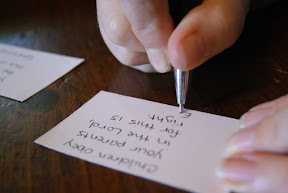 Children obey
your parents
in the Lord,
for this is
right.
E